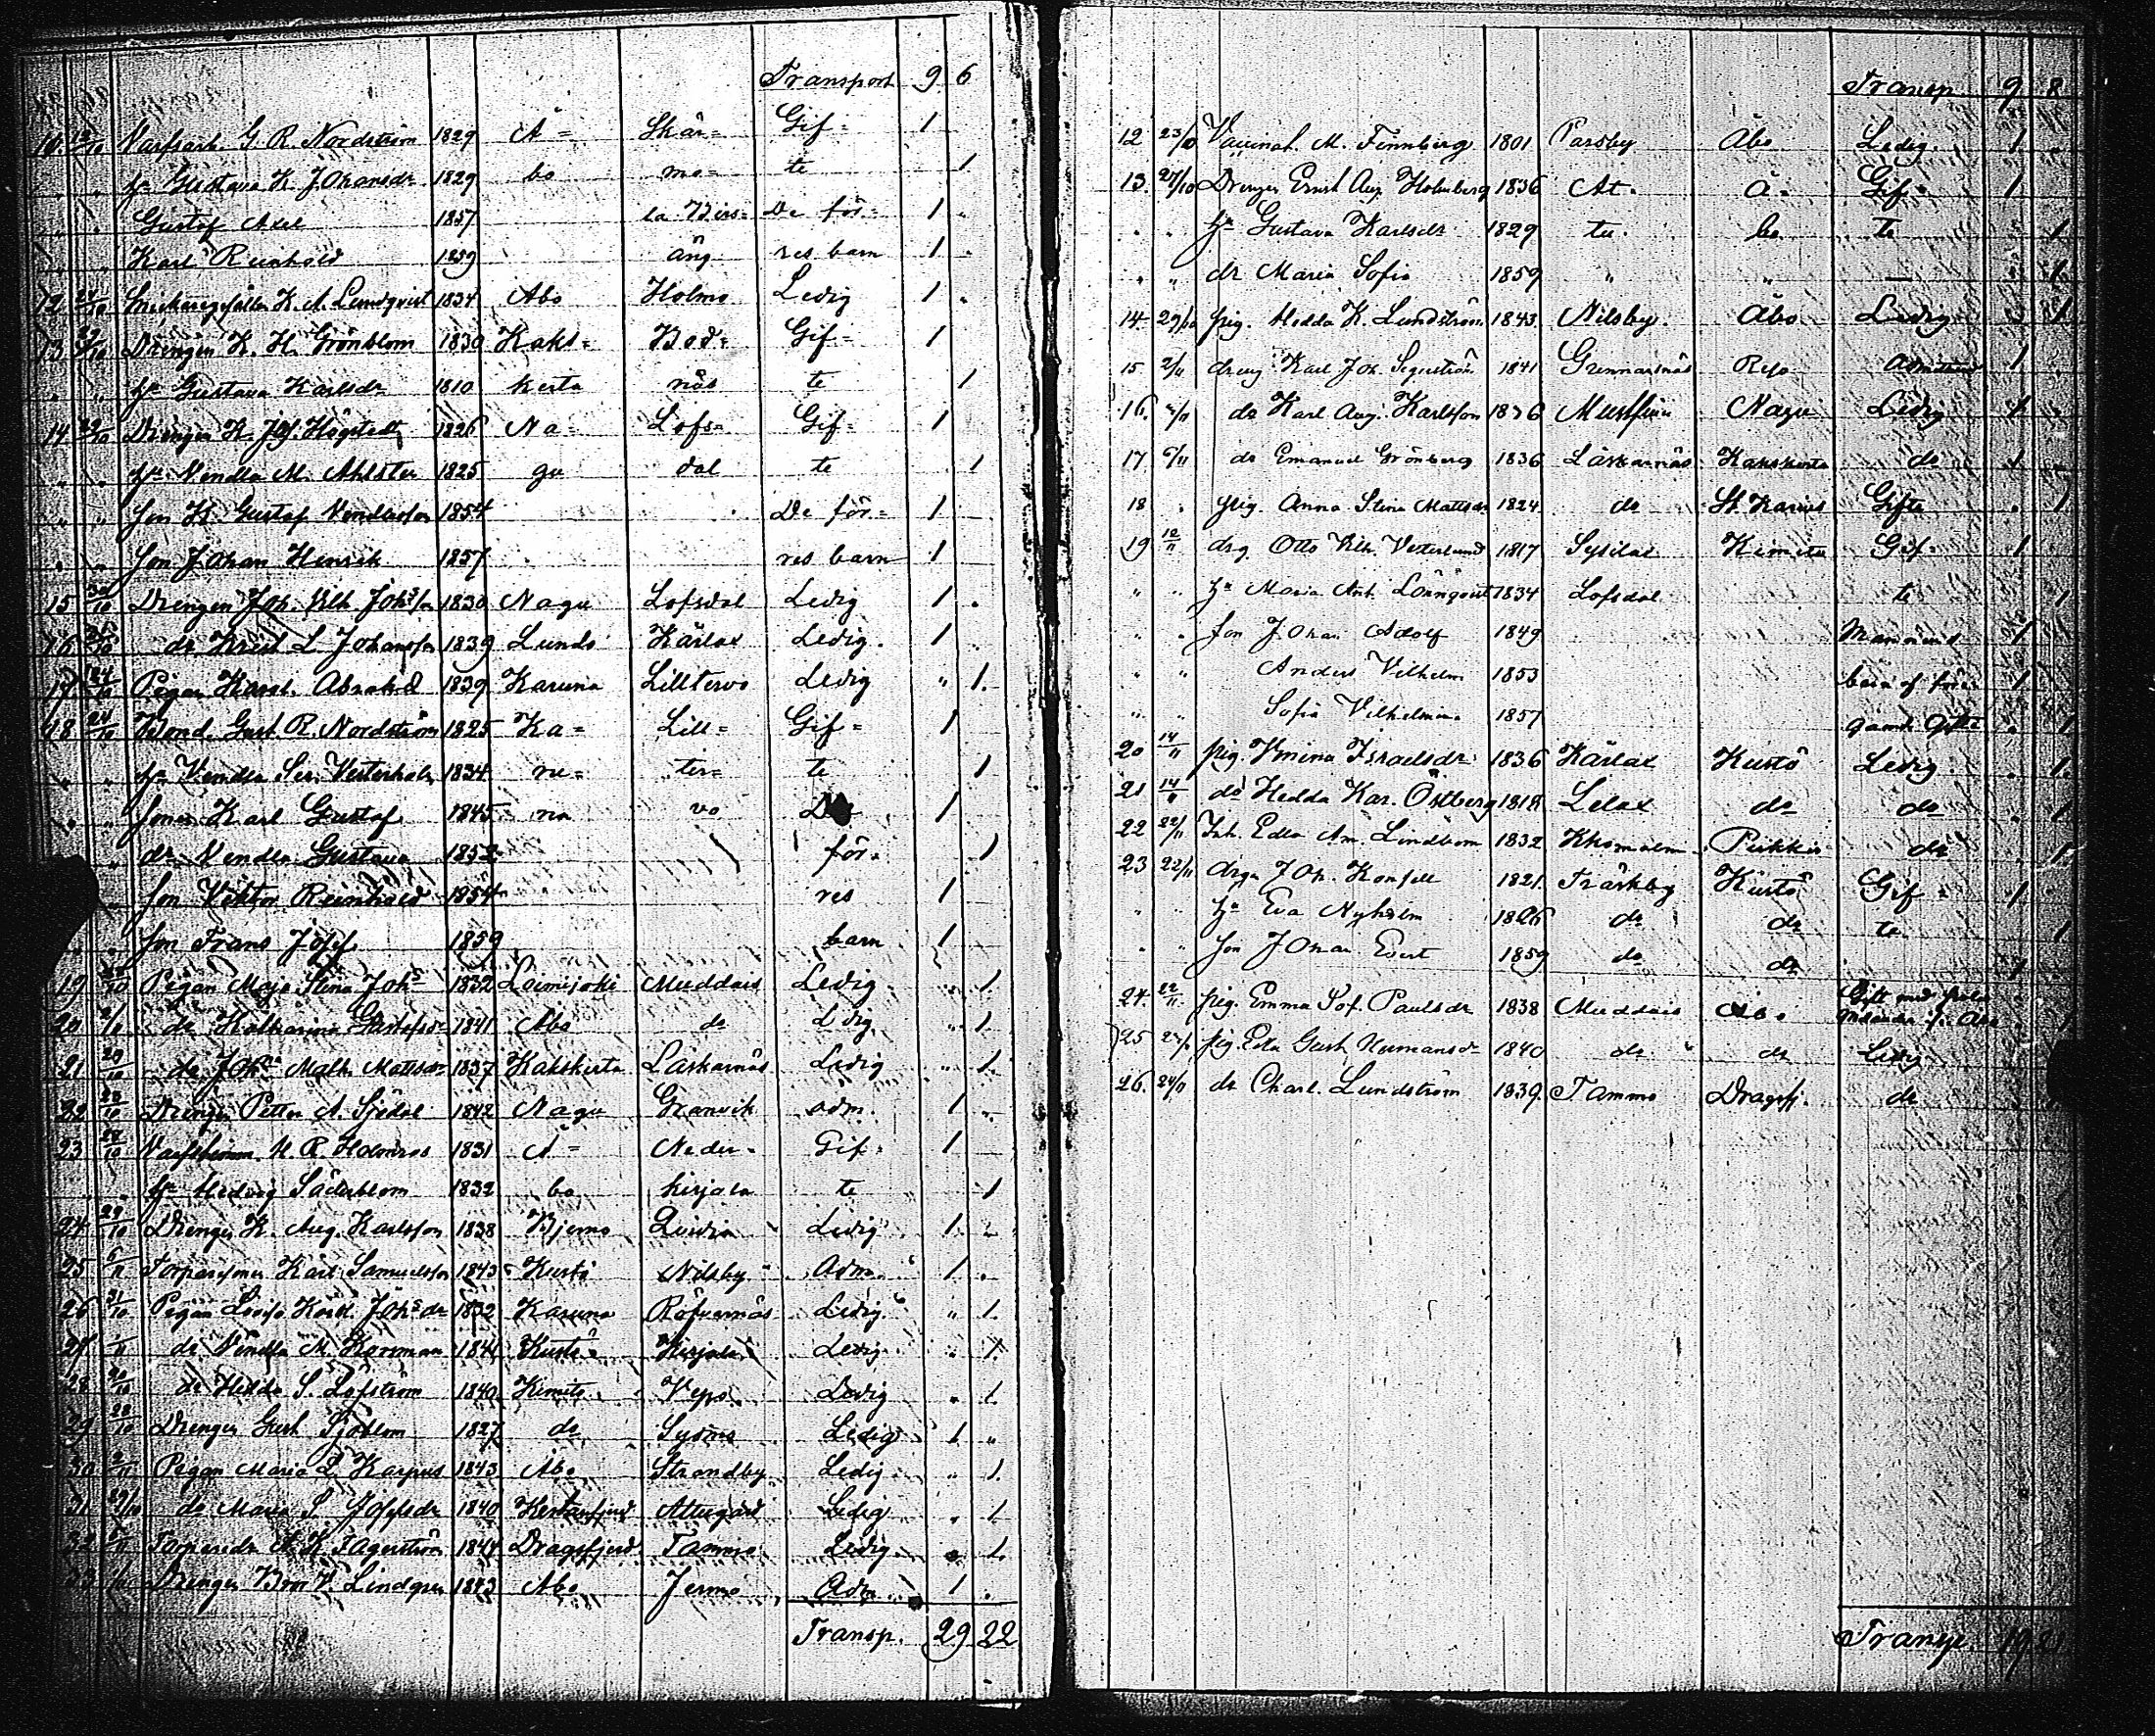 Transport 9 6
10 12/10 G. R. Nordström 1829 Å= Skär= Gif= 1
" " hu Gustava K. Johansdr 1829 bo mo= te 1
" " Gustaf Axel 1857 la De för= 1 "
" " Karl Reinhold 1859 äng res barn 1 "
12 24/10 K. A. Lundqvist 1834 Åbo Holmo Ledig 1 "
13 Drengen K. H. Grönblom 1830 Kaks= Bod= Gif= 1
" " hu Gustava Karlsdr 1810 kerta näs te 1
14 29/10 Drengen K. Jos. Högstedt 1826 Na= Lofs= Gif= 1
" " hu Vendla M. Ahlsten 1825 gu dal te 1
" " son K. Gustaf 1854 De för= 1
" " son Johan Henrik 1857 res barn 1
15 30/10 Drengen Joh. Vilh. Johsson 1830 Nagu Lofsdal Ledig 1 .
16 do Krist L Johansson 1839 Lundo Kärlax Ledig. 1
17 24/10 Pigan Karol. Abrahd 1839 Karuna Lilltervo Ledig " 1.
18 24/10 Bond. Gust. R. Nordström 1825 Ka= Lill= Gif= 1
" " hu Vendla Ser. Vesterholm 1834 ru= ter= te 1
" " sonen Karl Gustaf 1845 na vo 1
" dr Vendla Gustava 1852 för= 1
son Viktor Reinhold 1854 res 1
" son Frans Josef 1859 barn 1
19 Pigan Maja Stina Johs 1832 Loimijoki Muddais Ledig 1
20 do Katharina Gustafsdr 1841 Åbo do Ledig " 1.
21 29/10 do Joha Math. Mattsdr 1837 Kakskerta Laskarnäs Ledig " 1.
22 28/10 Drengen Petter A. Sjödal 1842 Nagu Granvik adm. 1 "
23 28/10 H. R. Holmros 1831 Å= Neder= Gif= 1
" " hu Hedvig Söderblom 1832 bo kirjala te 1
24 29/10 Drengen K. Aug. Karlsson 1838 Bjerno Ledig 1. "
25 6/11 Torparesonen Karl Samuelsson 1843 Kustö Nilsby Adm. 1 .
26 31/10 Pigan Lovisa Kord. Johsdr 1832 Karuna Röfvarnäs Ledig " 1.
27 do Vendla M. Korsman 1844 Kustö Kirjala Ledig " 1.
28 20/10 do Hedda S. Löfström 1840 Kimito Vepo Ledig " 1
29 28/10 Drengen Gust Sjöblom 1827 do Sydmo Ledig 1 "
30 2/11 Pigan Maria L. Karpus 1843 Åbo Strandby Ledig " 1.
31 29/10 do Maria S. Josefsdr 1840 Attugård Ledig " 1
32 A. K. Fagerström 1844 Dragsfjerd Tammo Ledig " 1.
33 Drengen V. Lindgren 1843 Åbo Jermo Adm 1 .
Transp. 29 22
Transp. 9 8
12 23/10 Vaccinat. M. Finnberg 1801 Parsby Åbo Ledig. 1 "
13. 24/10 Drengen Ernst Aug. Holmberg 1836 At= Å= Gif= 1
" " hu Gustava Karlsdr 1829 tu bo te 1
" " dr Maria Sofia 1859 " " — 1
14. 29/10 pig. Hedda K. Lundström 1843 Nilsby. Åbo Ledig 1
15 2/11 dreng Karl Joh. Segerström 1841 Grennarnäs Reso 1
16. /11 do Karl Aug. Karlsson 1836 Nagu Ledig 1
17 /11 do Emanuel Grönberg 1836 Laskarnäs Kakskerta do 1
18 " pig. Anna Stina Mattsdr 1824 do St Karins Gifta . 1
19 12/11 drg. Otto Vilh. Vesterlund 1817 Sysilax Kimito Gif= 1
" " hu Maria Ant. Lönnqvist 1834 Lofsdal te 1
" " son Johan Adolf 1849 1
" " Anders Vilhelm 1853 1
" " Sofia Vilhelmina 1857 1
20 14/11 pig. Vmina Israelsdr 1836 Kärlax Kustö Ledig . 1.
21 14/11 do Hedda Kar. Östberg 1818 Lelax do do . 1
22 22/11 Inh. Edla Am. Lindbom 1832 Pikkis do . 1
23 22/11 drgn Joh. Konsell 1821. Träskby Kustö Gif= 1
" " hu Eva Nyholm 1826 do do te 1
" " son Johan Evert 1859 do do 1
24. 22/11 pig. Emma Sof. Paulsdr 1838 Muddais Åbo
25 22/11 pig. Eda Gust. Hermansdr 1840 do do Ledig
26. 24/11 do Charl. Lundström 1839. Tammo Dragsfj. do
Transp. 19 21